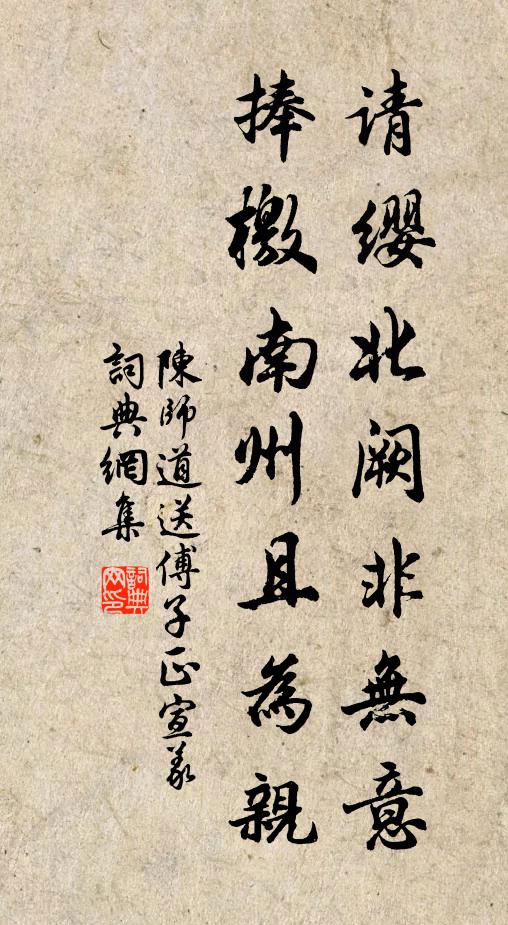 请缨北阙非無意
捧檄南州且為親
陳師道送傅子正宣義
詞典網集
詞典
网印